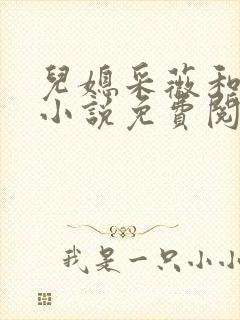 兒媳采薇和
小說免費閱
我是一只小小